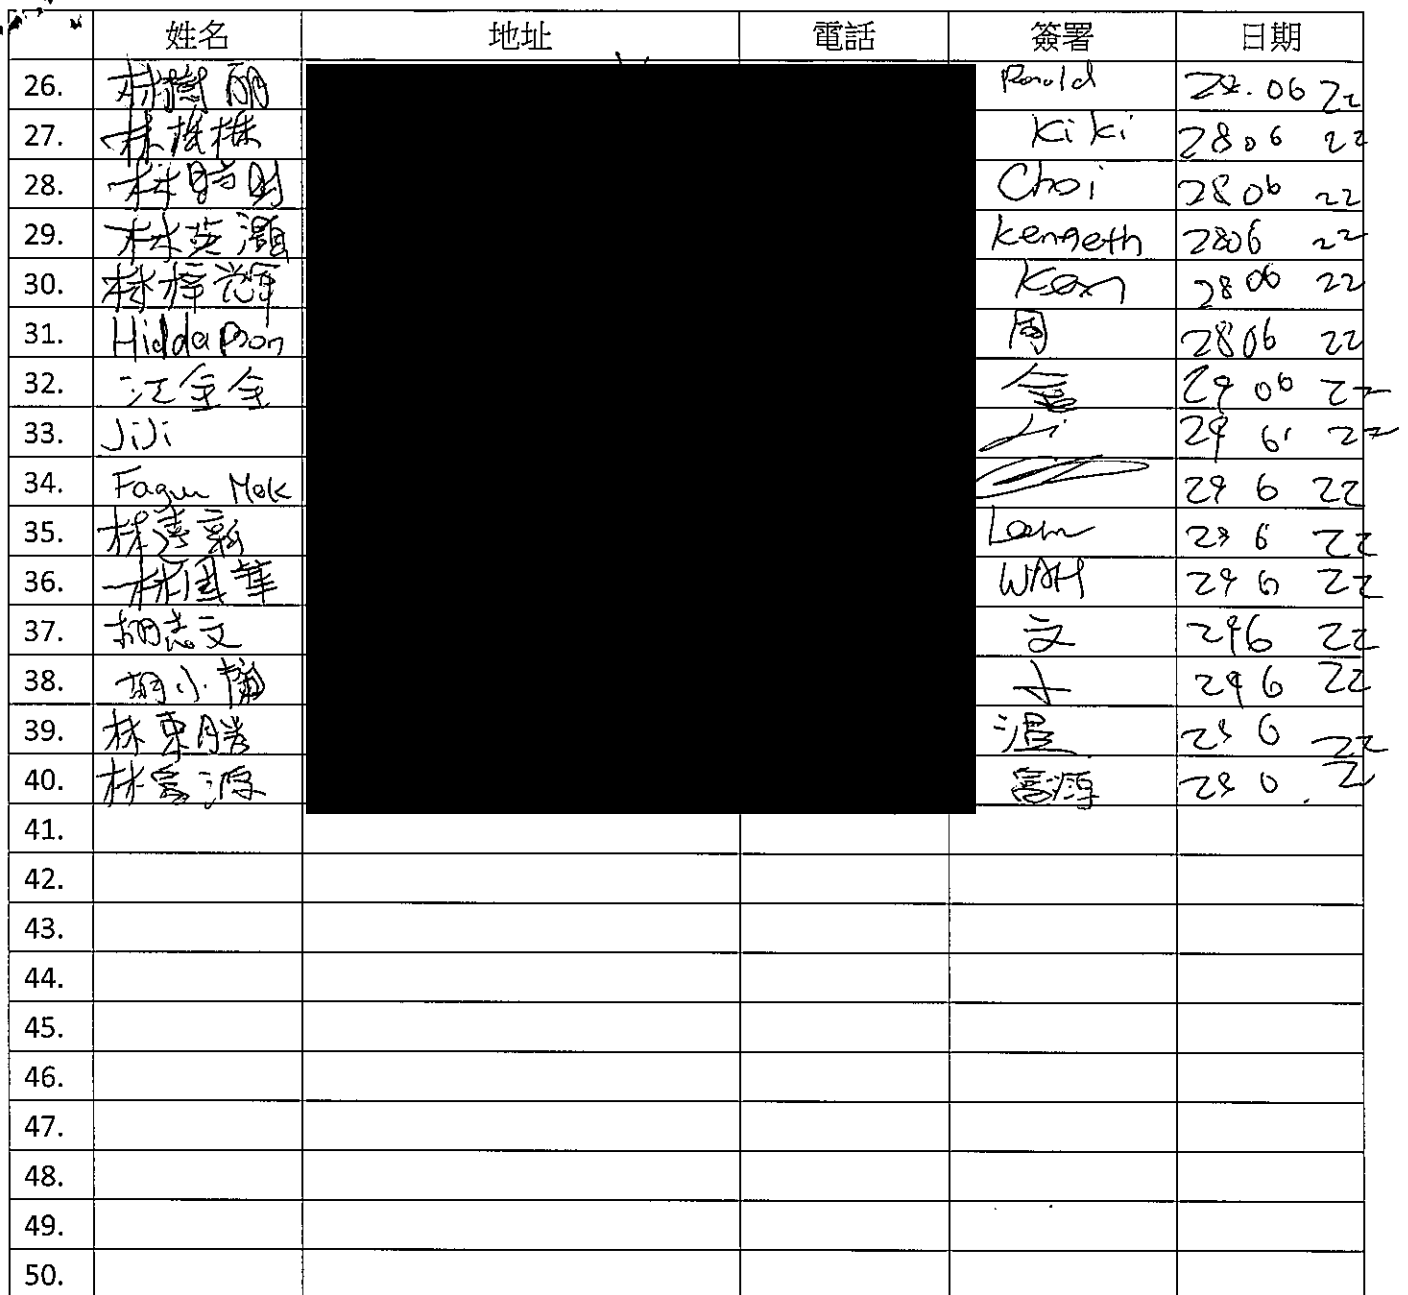 姓名 地址 電話 簽署 日期
26. 林樹丽 Ronald 28.06 22
27. 林 Kiki 2806 22
28. 林時財 Choi 2806 22
29. 林英灝 Kenneth 2806 22
30. 林梓輝 Ken 2806 22
31. Hidda 周 2806 22
32. 江全全 29 06 22
33. JiJi 29 6 22
34. Mok 29 6 22
35. 林 Lam 29 6 22
36. 林國華 WAH 29 6 22
37. 胡志文 文 296 22
38. 胡小 296 22
39. 林東勝 29 6 22
40. 林富源 富源 29
41.
42.
43.
44.
45.
46.
47.
48.
49.
50.